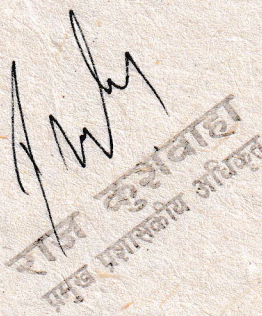 राज कुशवाहा
प्रमुख प्रशासकीय अधिकृत